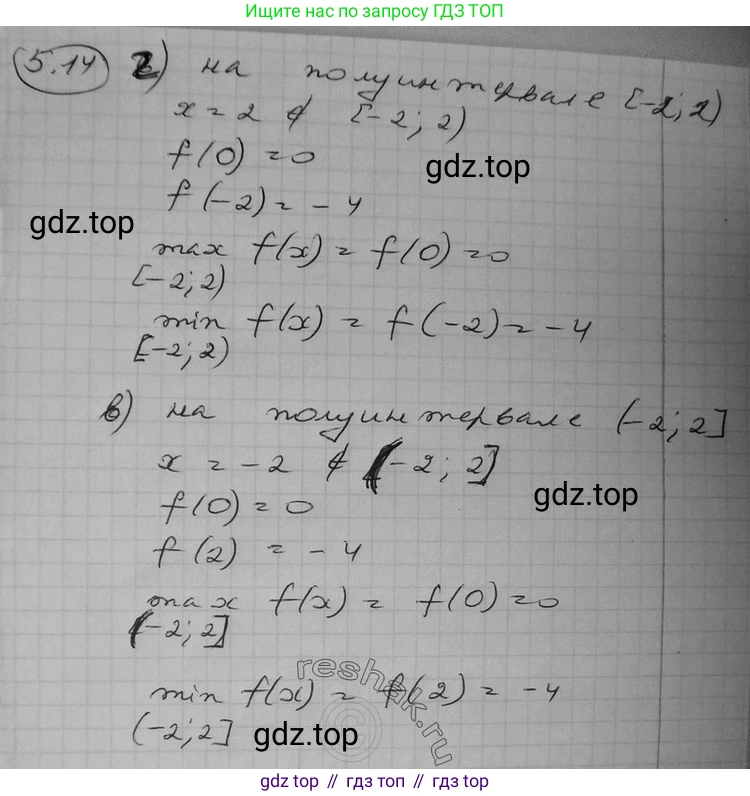 Найти все по запросу ГДЗ ТОП
5.14 г) на полуинтервале [-2; 2)
x = 2 ∉ [-2; 2)
f(0) = 0
gdz.top
f(-2) = -4
gdz.top
max f(x) = f(0) = 0
[-2; 2)
min f(x) = f(-2) = -4
[-2; 2)
в) на полуинтервале (-2; 2]
x = -2 ∉ (-2; 2]
f(0) = 0
gdz.top
f(2) = -4
max f(x) = f(0) = 0
(-2; 2]
min f(x) = f(2) = -4
(-2; 2]
reshak.ru
©
gdz.top
gdz top // гдз топ // gdz top